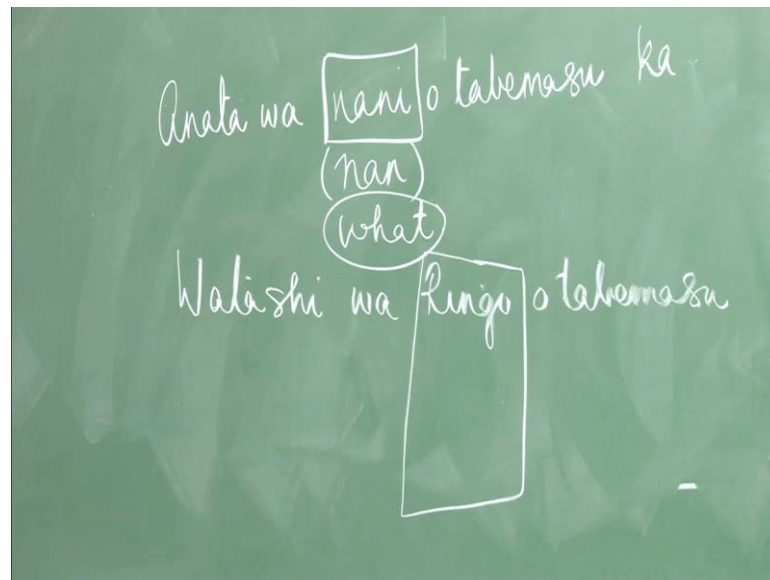 Anata wa nani o tabemasu ka
(nan)
what
Watashi wa Ringo o tabemasu